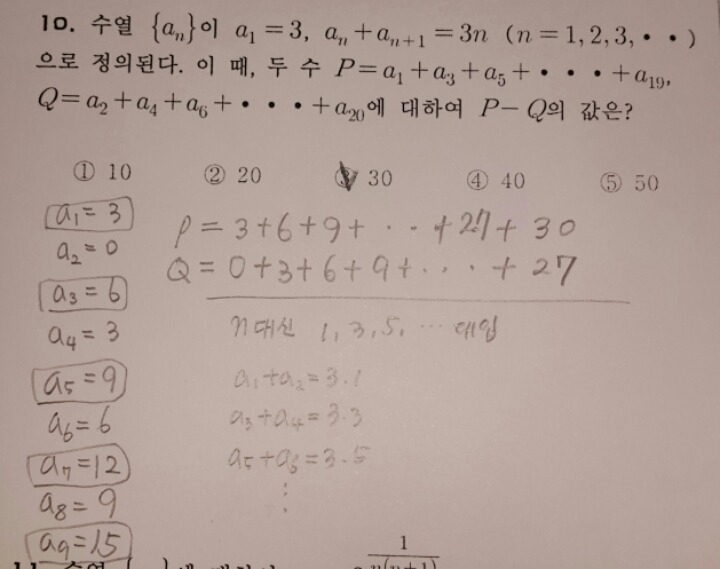 10. 수열 {aₙ}이 a₁=3, aₙ+aₙ₊₁=3n (n=1,2,3,・・)
으로 정의된다. 이 때, 두 수 P=a₁+a₃+a₅+・・・+a₁₉,
Q=a₂+a₄+a₆+・・・+a₂₀에 대하여 P-Q의 값은?
① 10 ② 20 ③ 30 ④ 40 ⑤ 50
a₁=3
a₂=0
a₃=6
a₄=3
a₅=9
a₆=6
a₇=12
a₈=9
a₉=15
P=3+6+9+・・・+27+30
Q=0+3+6+9+・・・+27
n대신 1,3,5,… 대입
a₁+a₂=3·1
a₃+a₄=3·3
a₅+a₆=3·5
⋮
11. 수열
1
n(n+1)